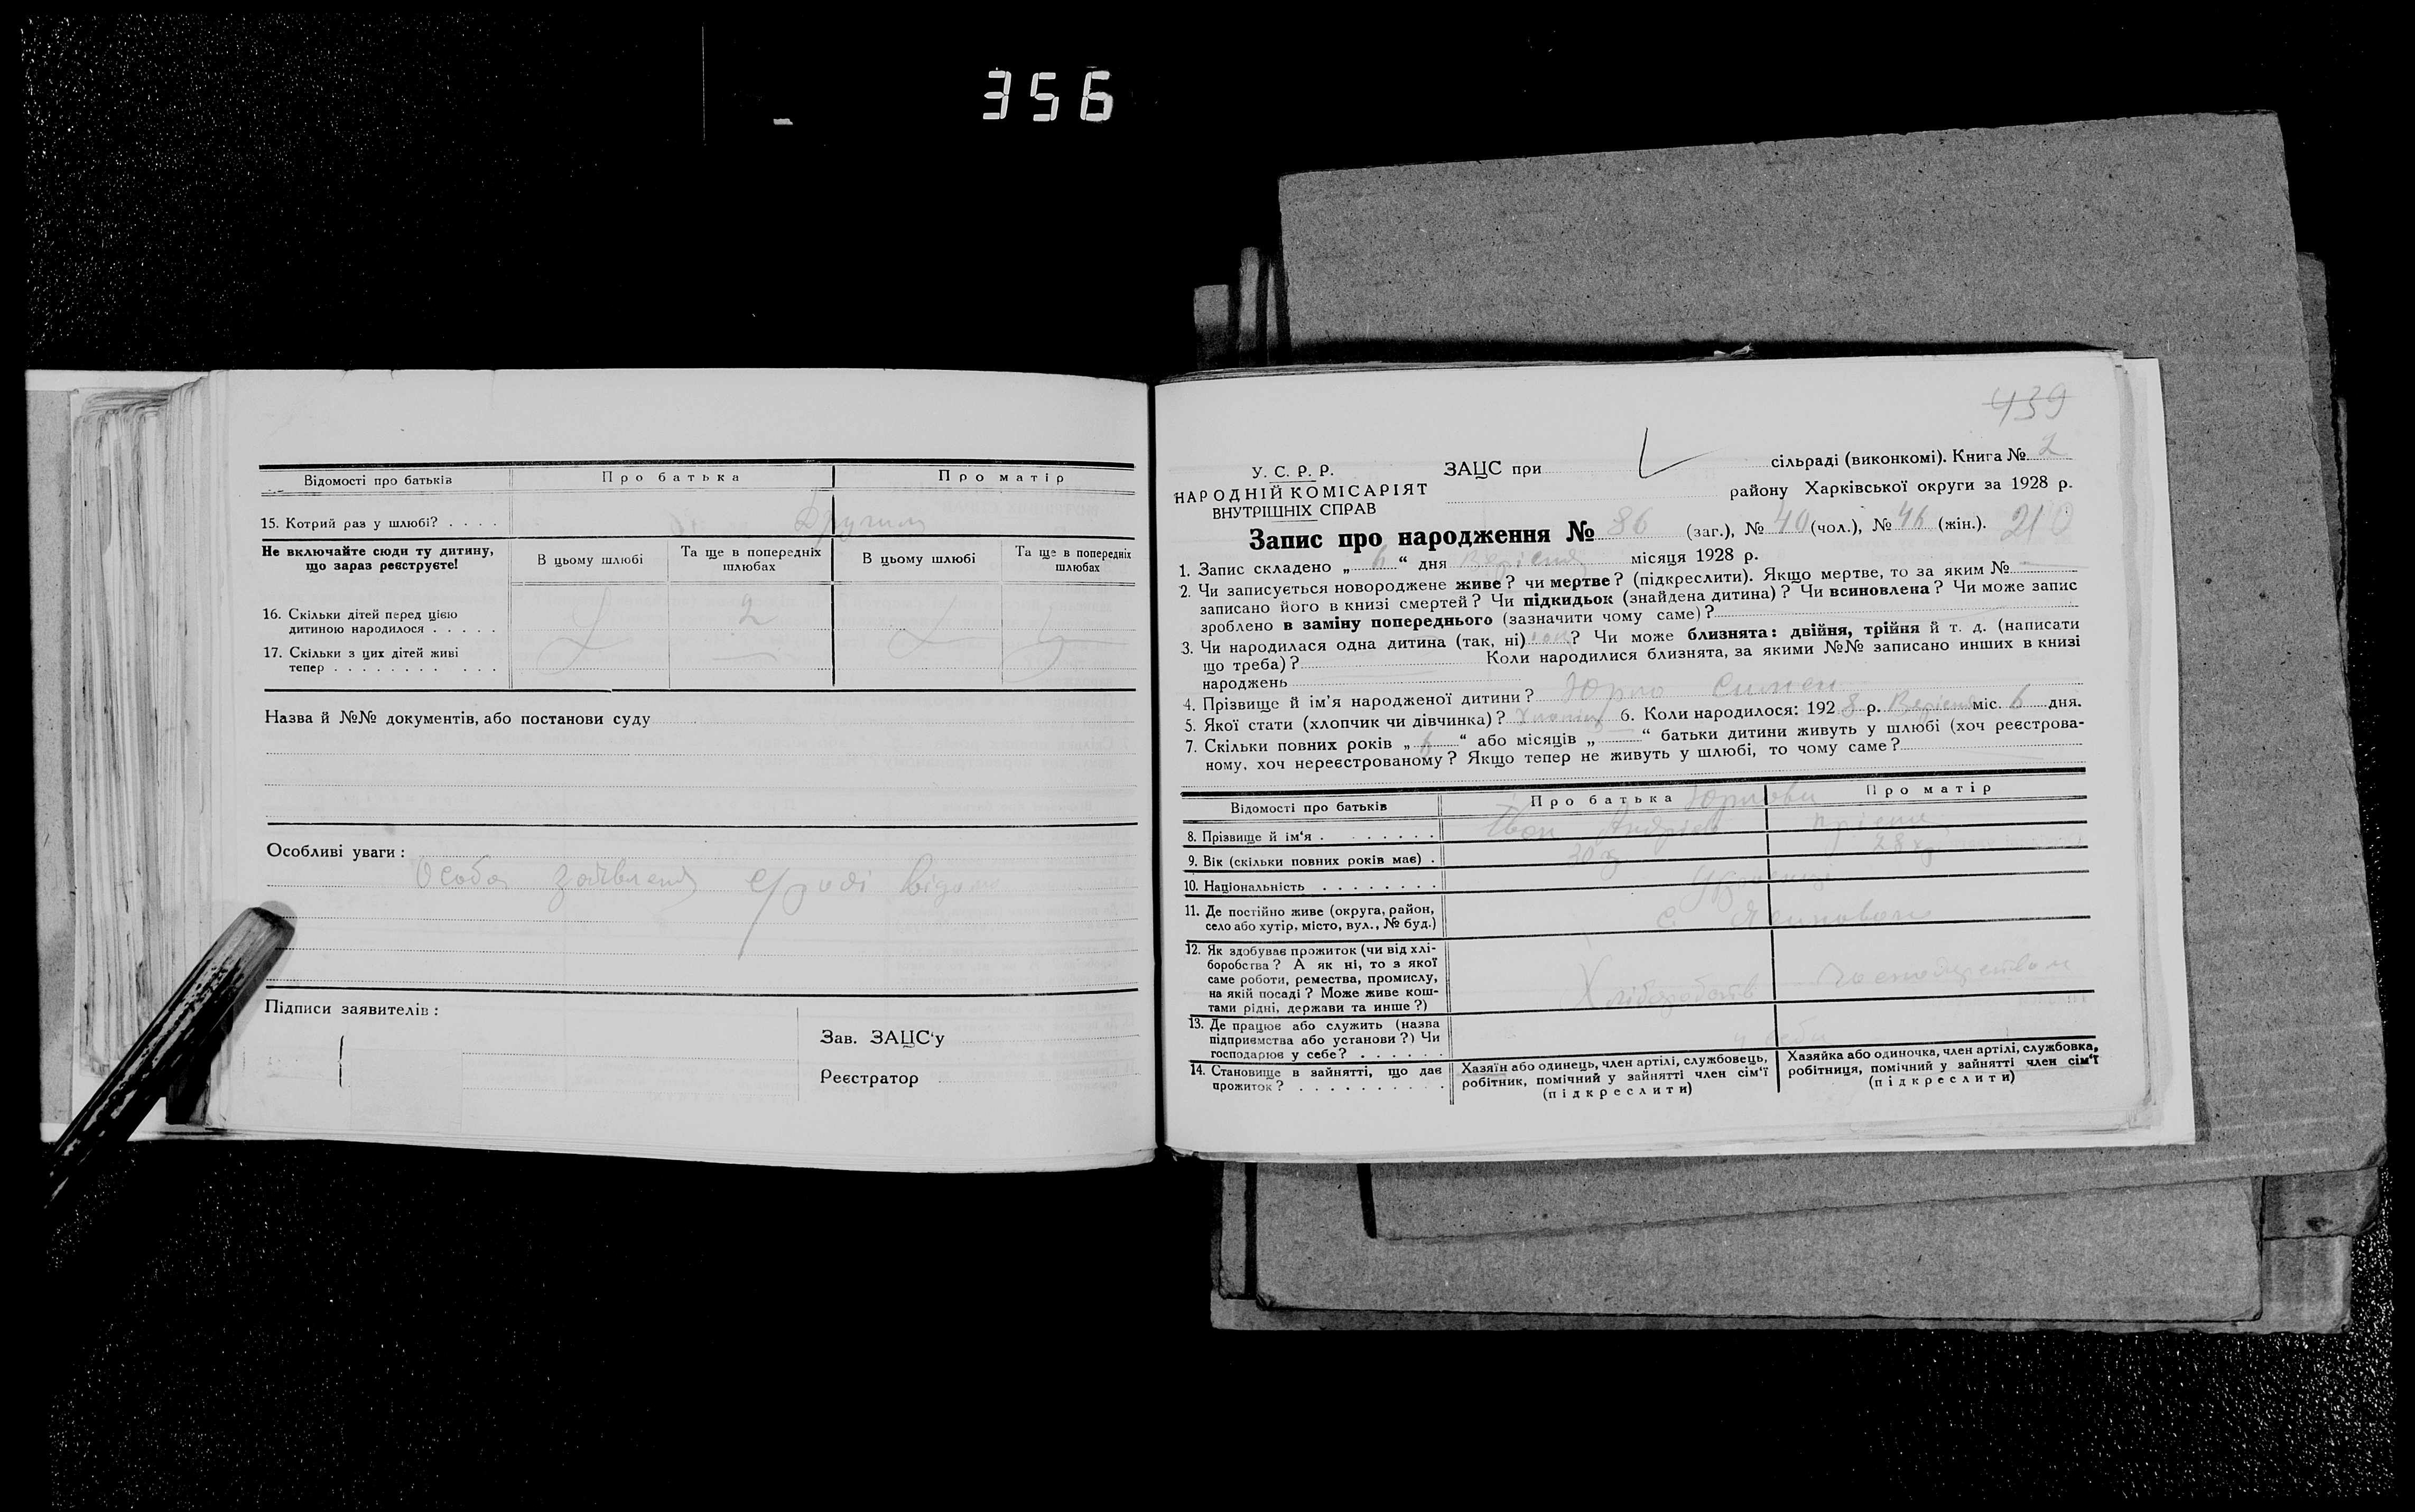 356
Відомості про батьків
Про батька
Про матір
15. Котрий раз у шлюбі? . . . .
Другим
Не включайте сюди ту дитину, що зараз реєструєте!
В цьому шлюбі
Та ще в попередніх шлюбах
В цьому шлюбі
Та ще в попередніх шлюбах
16. Скільки дітей перед цією
дитиною народилося . . . . .
2
17. Скільки з цих дітей живі
тепер . . . . . . . . . . .
Назва й №№ документів, або постанови суду
Особливі уваги:
Особа заявленя с/раді відома
Підписи заявителів:
Зав. ЗАЦС'у
Реєстратор
439
У. С. Р. Р.
НАРОДНІЙ КОМІСАРІЯТ
ВНУТРІШНІХ СПРАВ
ЗАЦС при
сільраді (виконкомі). Книга № 2
району Харківської округи за 1928 р.
Запис про народження № 86 (заг.), № 40 (чол.), № 46 (жін.). 210
1. Запис складено „ 6 “ дня Верісня місяця 1928 р.
2. Чи записується новороджене живе? чи мертве? (підкреслити). Якщо мертве, то за яким №
записано його в книзі смертей? Чи підкидьок (знайдена дитина)? Чи всиновлена? Чи може запис
зроблено в заміну попереднього (зазначити чому саме)?
3. Чи народилася одна дитина (так, ні) ? Чи може близнята: двійня, трійня й т. д. (написати
що треба)? Коли народилися близнята, за якими №№ записано инших в книзі
народжень
4. Прізвище й ім'я народженої дитини? Симон
5. Якої стати (хлопчик чи дівчинка)? Хлопчик 6. Коли народилося: 1928 р. Верісня міс. 6 дня.
7. Скільки повних років „ “ або місяців „ “ батьки дитини живуть у шлюбі (хоч реєстрова-
ному, хоч нереєстрованому? Якщо тепер не живуть у шлюбі, то чому саме?
Відомості про батьків
Про батька
Про матір
8. Прізвище й ім'я . . . . . . .
Іван Андрієв
9. Вік (скільки повних років має) .
30
28
10. Національність . . . . . . . .
11. Де постійно живе (округа, район,
село або хутір, місто, вул., № буд.)
с.
12. Як здобуває прожиток (чи від хлі-
боробства? А як ні, то з якої
саме роботи, ремества, промислу,
на якій посаді? Може живе кош-
тами рідні, держави та инше?)
Хліборобств
13. Де працює або служить (назва
підприємства або установи?) Чи
господарює у себе? . . . . . .
14. Становище в зайнятті, що дає
прожиток? . . . . . . . . . .
Хазяїн або одинець, член артілі, службовець,
робітник, помічний у зайнятті член сім'ї
(підкреслити)
Хазяйка або одиночка, член артілі, службовка,
робітниця, помічний у зайнятті член сім'ї
(підкреслити)